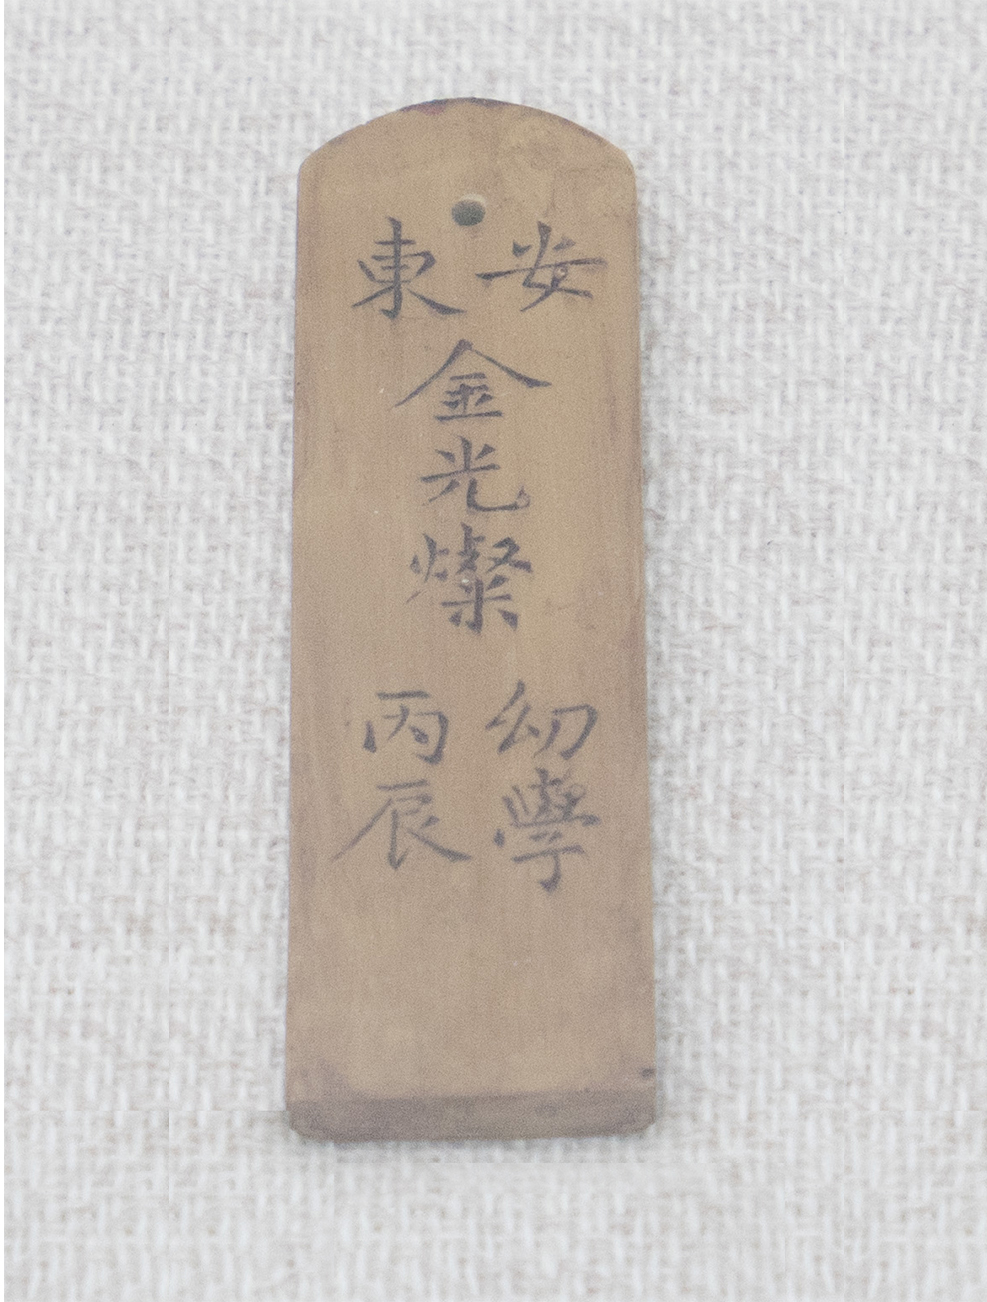 安東
金光燦
幼學
丙辰